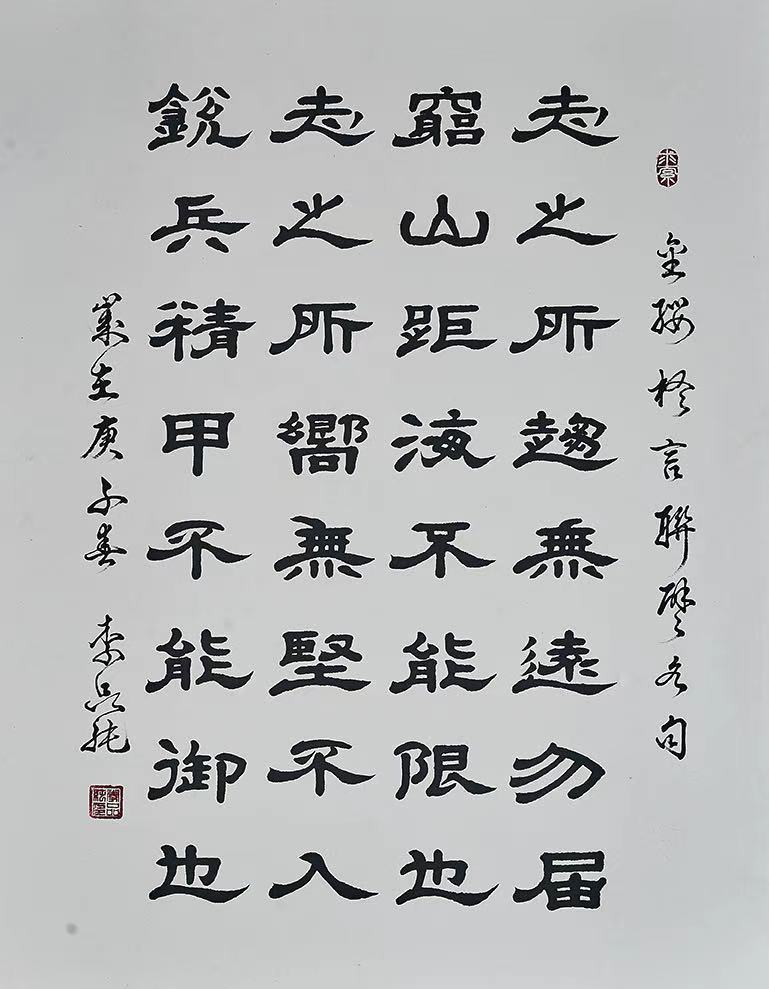 金纓格言聯璧名句
志之所趨無遠勿届
窮山距海不能限也
志之所嚮無堅不入
銳兵精甲不能御也
歲在庚子春 李品